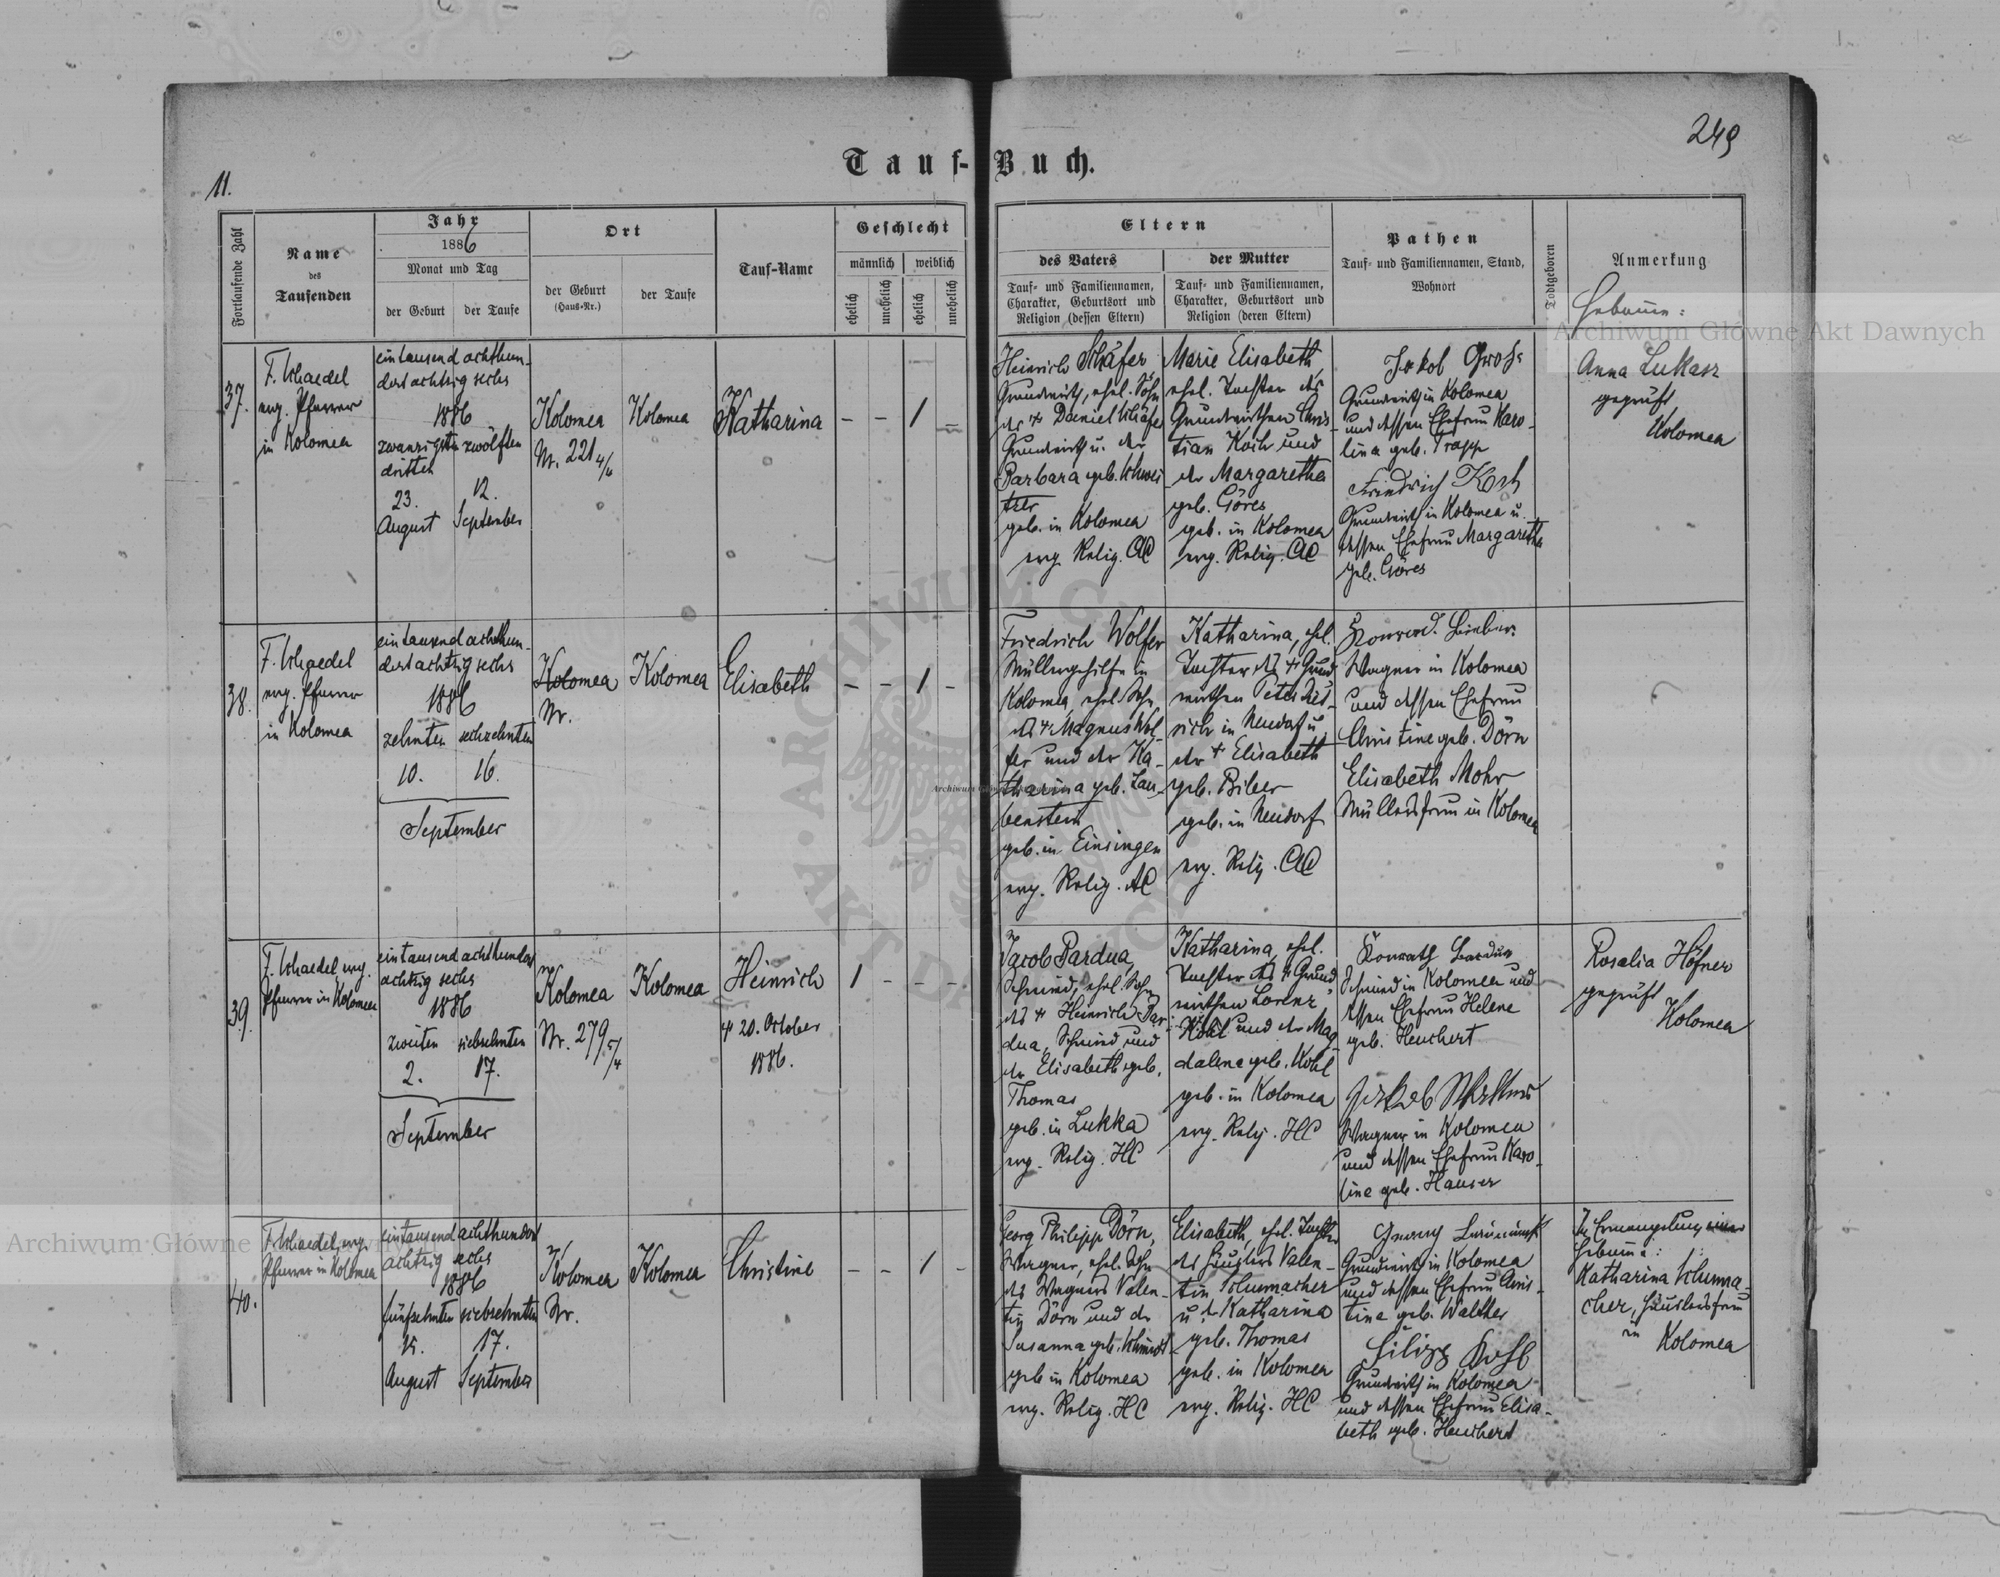 249
11.
Tauf-Buch.
Fortlaufende Zahl
Name
des
Taufenden
Jahr
1886
Monat und Tag
der Geburt
der Taufe
Ort
der Geburt
(Haus-Nr.)
der Taufe
Tauf-Name
Geschlecht
männlich
weiblich
ehelich
unehelich
ehelich
unehelich
Eltern
des Vaters
Tauf- und Familiennamen,
Charakter, Geburtsort und
Religion (dessen Eltern)
der Mutter
Tauf- und Familiennamen,
Charakter, Geburtsort und
Religion (deren Eltern)
Pathen
Tauf- und Familiennamen, Stand,
Wohnort
Todtgeboren
Anmerkung
Hebamme:
37.
F. Schaedel
evg. Pfarrer
in Kolomea
eintausend achthun-
dert achtzig sechs
1886
zwanzigsten
dritten
23.
August
zwölften
12.
September
Kolomea
Nr. 221 4/6
Kolomea
Katharina
– – 1 –
Heinrich Schäfer,
Grundwirth, ehel. Sohn
des † Daniel Schäfer
Grundwirth u. der
Barbara geb. Schwei
tzer
geb. in Kolomea
evg. Relig. AC
Marie Elisabeth,
ehel. Tochter des
Grundwirthen Chris-
tian Koch und
der Margaretha
geb. Göres
geb. in Kolomea
evg. Relig. AC
Jakob Groß
Grundwirth in Kolomea
und dessen Ehefrau Karo-
lina geb. Trapp
Friedrich Koch
Grundwirth in Kolomea u.
dessen Ehefrau Margaretha
geb. Göres
Anna Lukasz
geprüft
Kolomea
38.
F. Schaedel
evg. Pfarrer
in Kolomea
eintausend achthun-
dert achtzig sechs
1886
zehnten
sechzehnten
10.
16.
September
Kolomea
Nr.
Kolomea
Elisabeth
– – 1 –
Friedrich Wolfer
Müllergehilfe in
Kolomea, ehel. Sohn
des † Magnus Wol-
fer und der Ka-
tharina geb. Lau-
benstein
geb. in Einsingen
evg. Relig. AC
Katharina, ehel.
Tochter des † Grund
wirthen Peter
in Neudorf u
der † Elisabeth
geb. Biber
geb. in Neudorf
evg. Relig. AC
Konrad Bieber
Wagner in Kolomea
und dessen Ehefrau
Christine geb. Dörn
Elisabeth Mohr
Müllersfrau in Kolomea
39.
F. Schaedel evg.
Pfarrer in Kolomea
eintausend achthundert
achtzig sechs
1886
zweiten
siebzehnten
2.
17.
September
Kolomea
Nr. 279 5/4
Kolomea
Heinrich
† 20. October
1886.
1 – – –
Jacob Pardua,
Schmied, ehel. Sohn
des † Heinrich Par-
dua, Schmied und
der Elisabeth geb.
Thomas
geb. in Lukka
evg. Relig. HC
Katharina, ehel.
Tochter des † Grund-
wirthen Lorenz
Kohl und der Mag-
dalena geb. Kohl
geb. in Kolomea
evg. Relig. HC
Konrath Bardua
Schmied in Kolomea und
dessen Ehefrau Helene
geb. Heuchert
Jakob
Wagner in Kolomea
und dessen Ehefrau Karo-
line geb. Hauser
Rosalia Höfner
geprüft
Kolomea
40.
F. Schaedel, evg.
Pfarrer in Kolomea
eintausend achthundert
achtzig sechs
1886
fünfzehnten
siebzehnten
15.
17.
August
September
Kolomea
Nr.
Kolomea
Christine
– – 1 –
Georg Philipp Dörn,
Wagner, ehel. Sohn
des Wagners Valen-
tin Dörn und der
Susanna geb. Schmidt
geb. in Kolomea
evg. Relig. HC
Elisabeth, ehel. Tochter
des Häuslers Valen-
tin Schumacher
u. d. Katharina
geb. Thomas
geb. in Kolomea
evg. Relig. HC
Georg
Grundwirth in Kolomea
und dessen Ehefrau Chris-
tine geb. Walther
Filipp Kohl
Grundwirth in Kolomea
und dessen Ehefrau Elisa-
beth geb. Heuchert
In Ermangelung einer
Hebamme:
Katharina Schuma-
cher, Häuslersfrau
in Kolomea
Archiwum Główne Akt Dawnych
Archiwum Główne Akt Dawnych